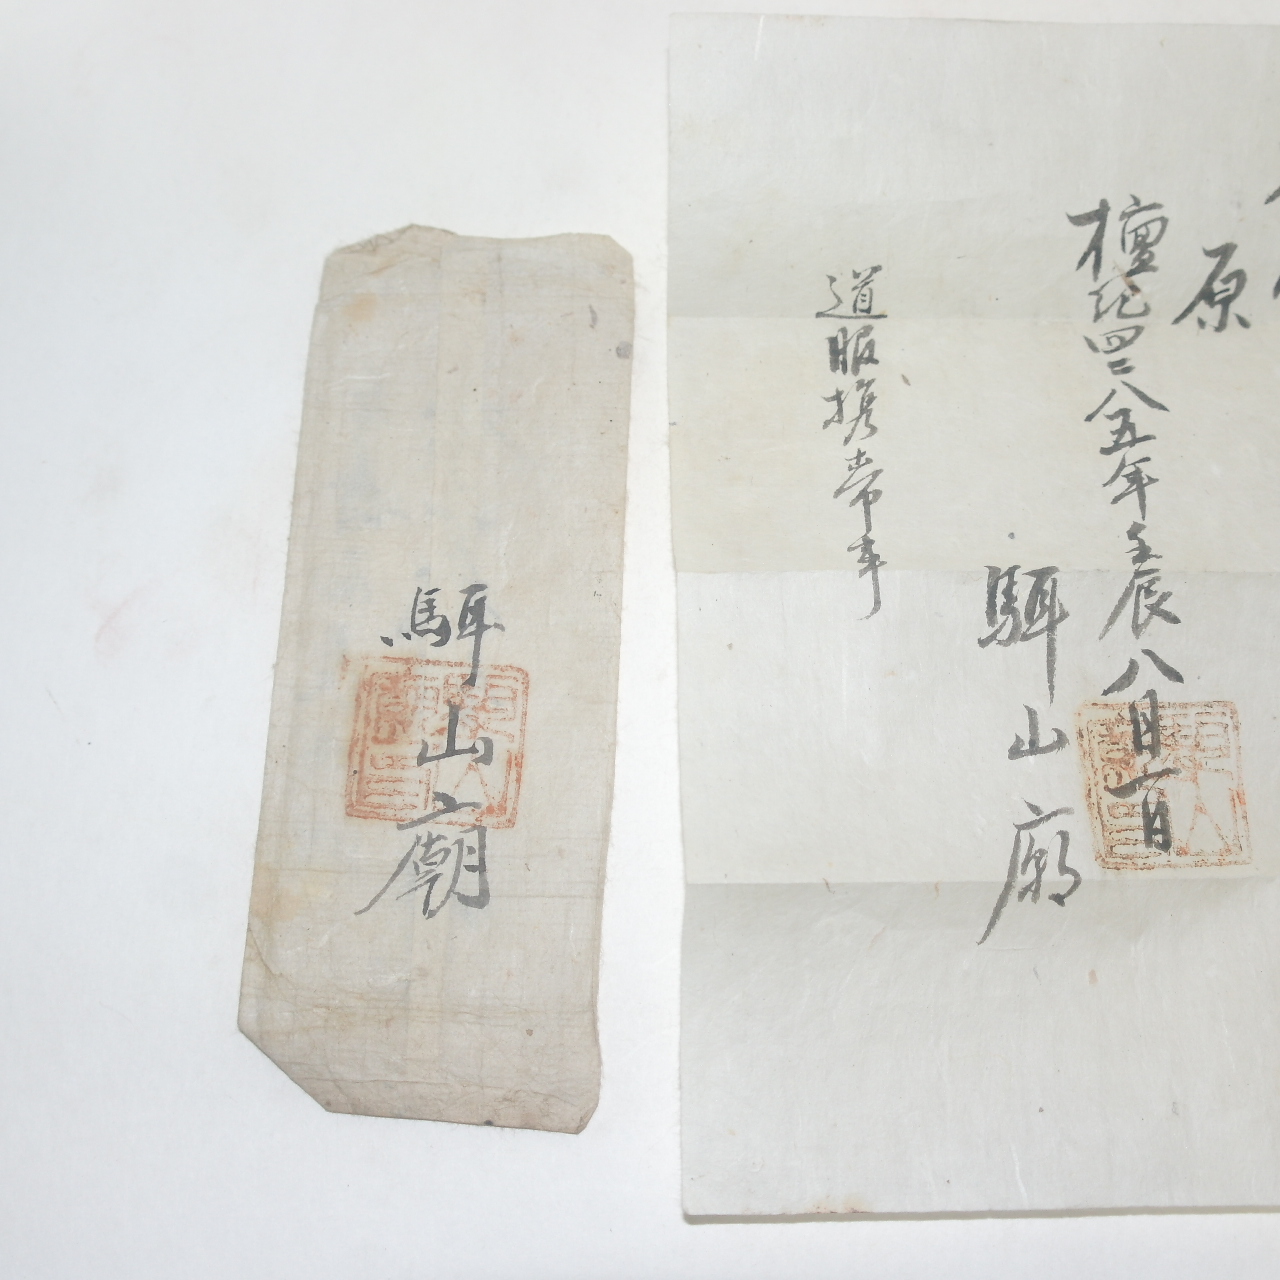 原
檀紀四二八五年壬辰八月一日
駬山廟
道服携帶事
駬山廟